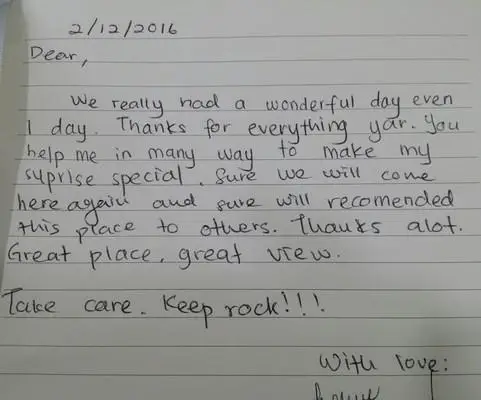 2/12/2016
Dear,
We really had a wonderful day even
1 day. Thanks for everything yar. You
help me in many way to make my
suprise special. Sure we will come
here again and sure will recomended
this place to others. Thanks alot.
Great place, great view.
Take care. Keep rock!!!
With love: